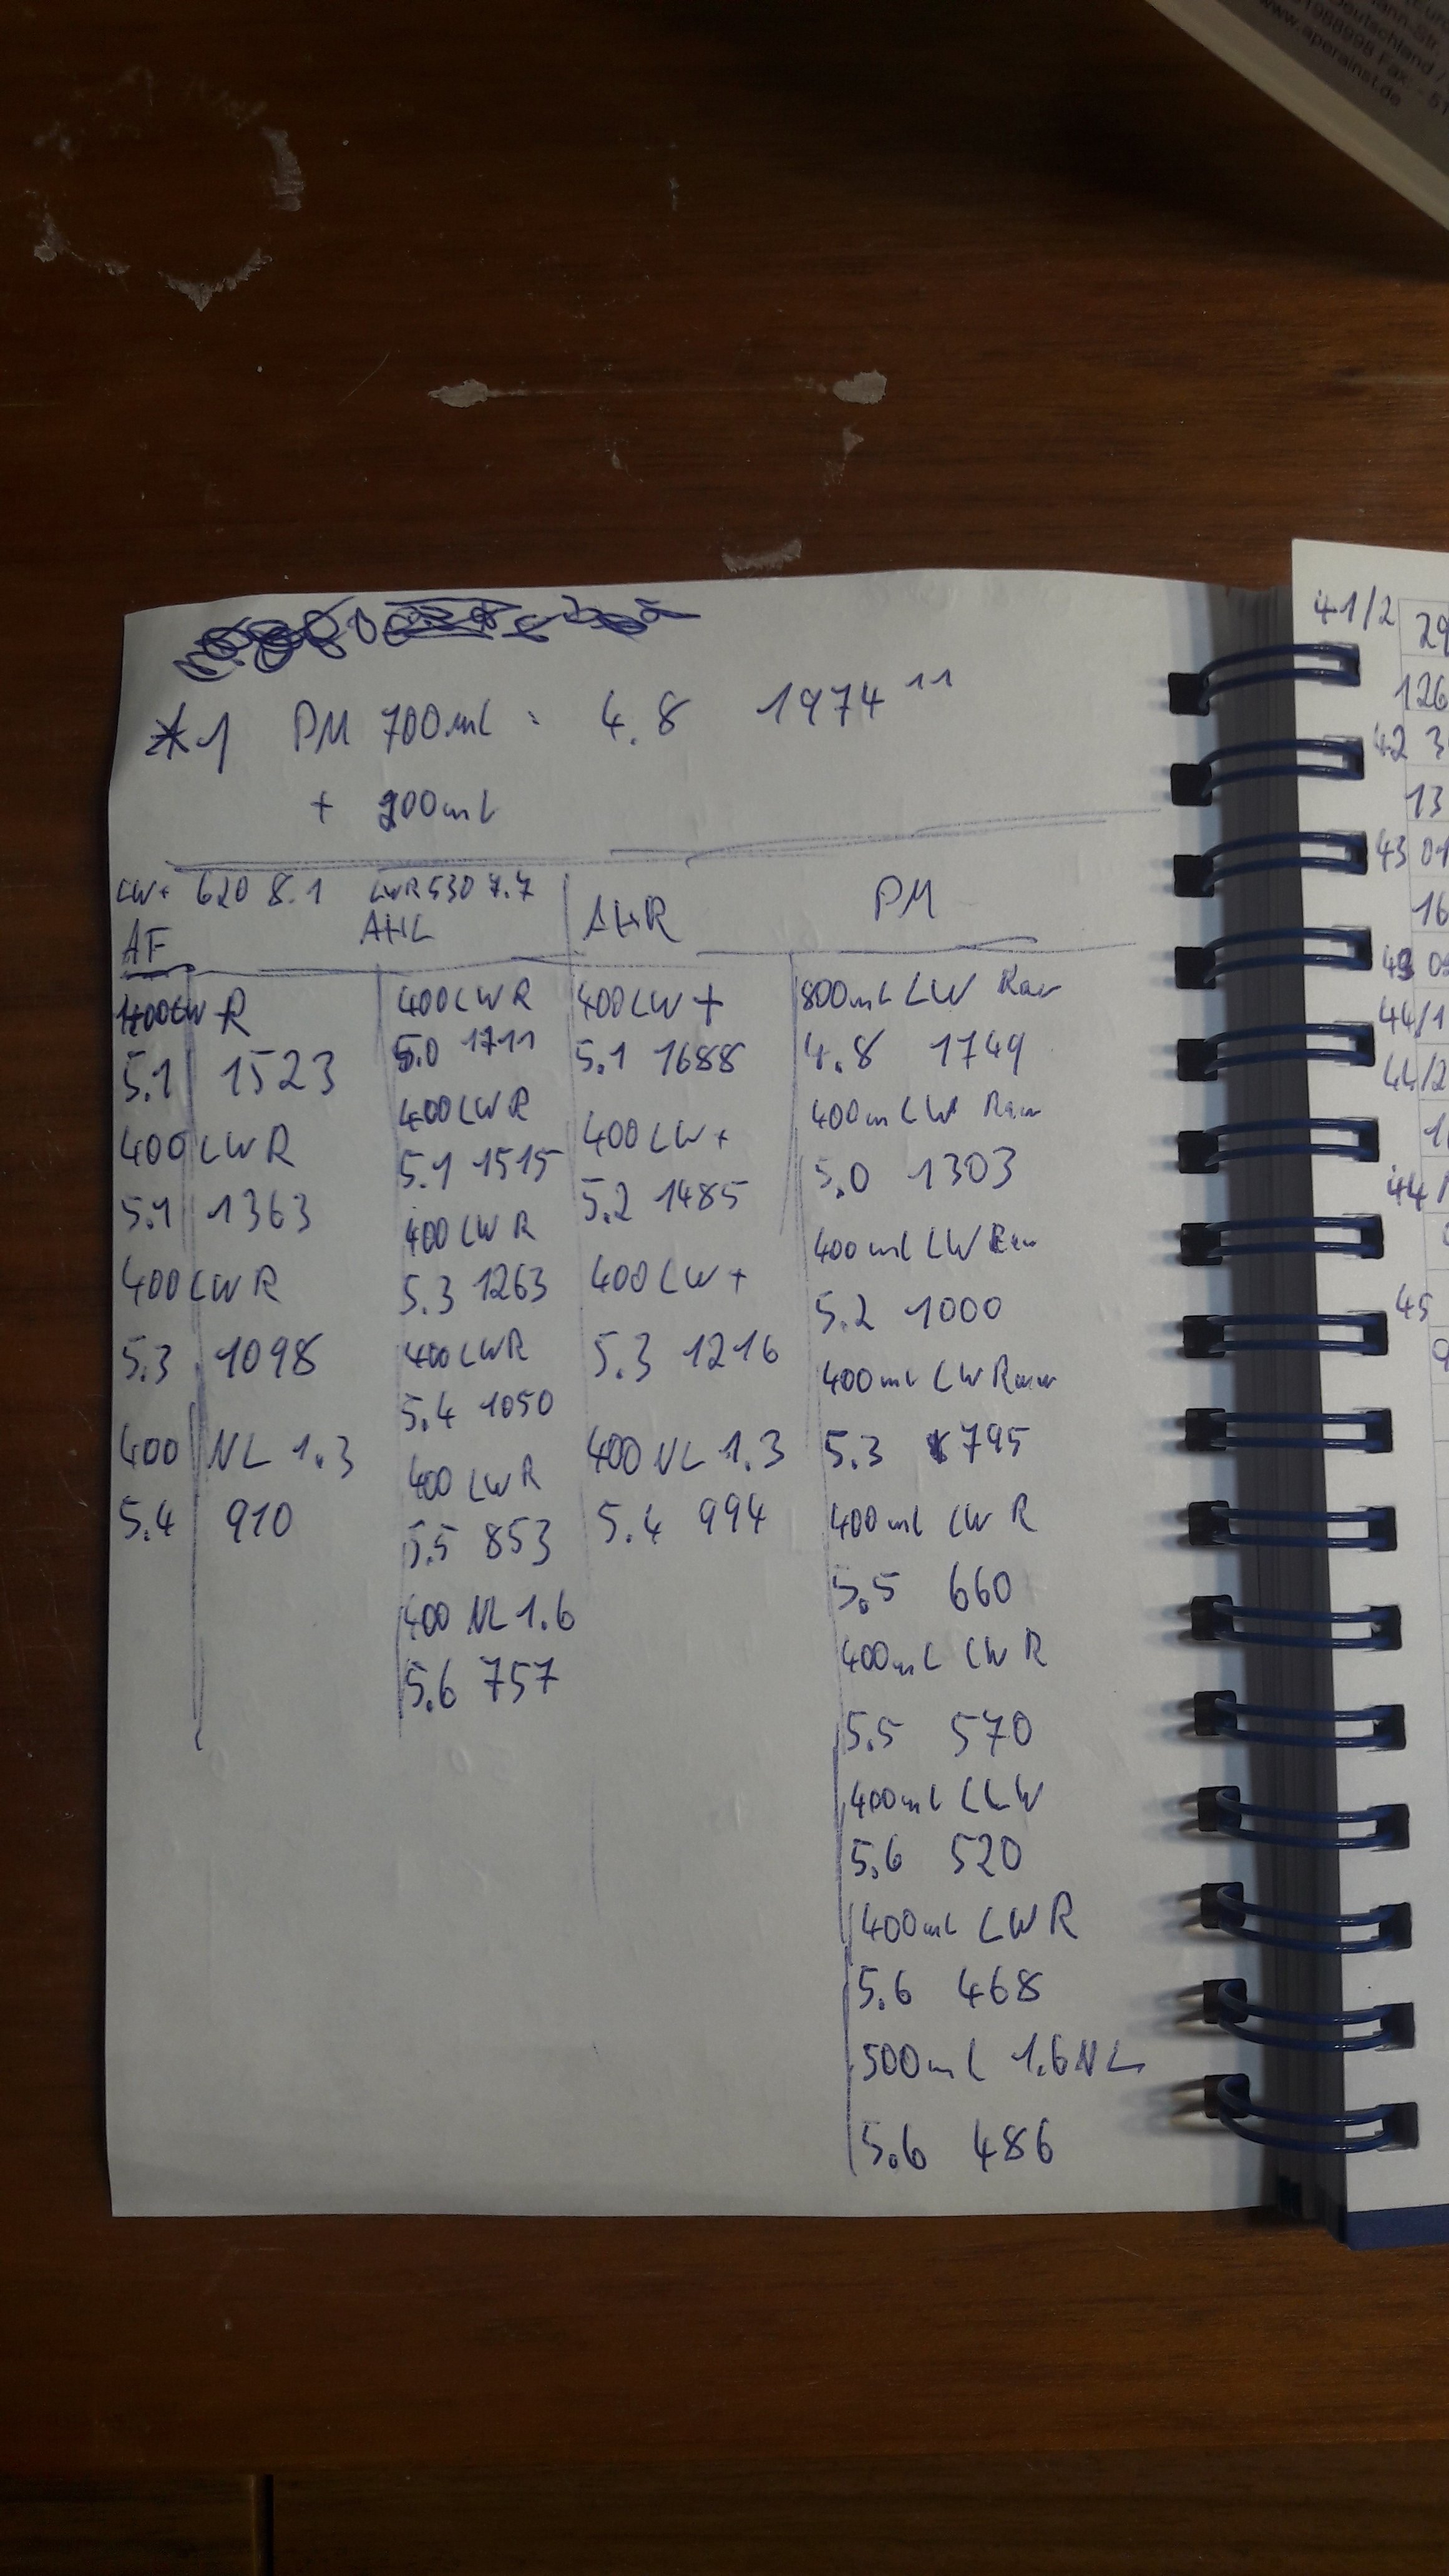 *1 PM 700ml: 4.8 1974
+ 200ml
LW+ 620 8.1 LWR 530 7.7
AF
AHL
AHR
PM
400LWR
5.1 1523
400LWR
5.1 1363
400LWR
5.3 1098
400 NL 1.3
5.4 910
400LWR
5.0 1711
400LWR
5.1 1515
400LWR
5.3 1263
400LWR
5.4 1050
400 LWR
5.5 853
400 NL 1.6
5.6 757
400LW+
5.1 1688
400LW+
5.2 1485
400LW+
5.3 1216
400 NL 1.3
5.4 994
800ml LW
4.8 1749
400ml LW
5.0 1303
400ml LW
5.2 1000
400ml LW
5.3 795
400ml LW R
5.5 660
400ml LW R
5.5 570
400ml LLW
5.6 520
400ml LWR
5.6 468
500ml 1.6NL
5.6 486
41/2
29
126
42 3
13
43
16
44/1
44/2
44/
45
Deutschland /
Fax: - 51
www.aperainst.de